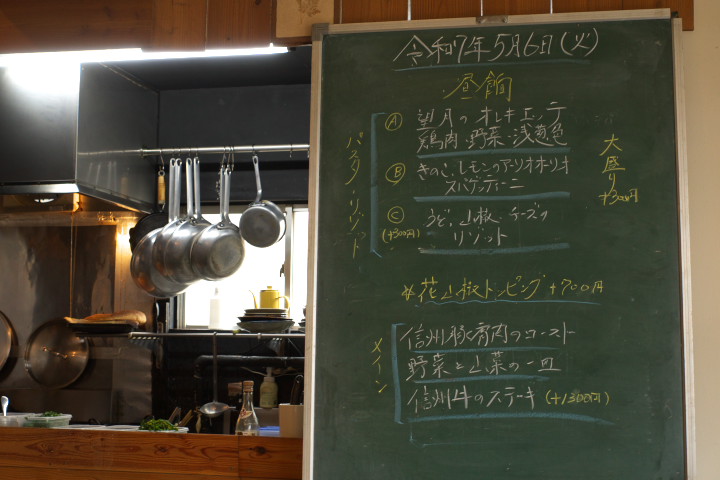 令和7年5月6日(火)
昼餉
パスタ・リゾット
Ⓐ 望月のオレキエッテ
鶏肉・野菜・浅葱色
Ⓑ きのこ、レモンのアーリオオーリオ
スパゲッティーニ
Ⓒ うど、山椒、チーズの
(+300円) リゾット
大盛り
+300円
花山椒トッピング +700円
メイン
信州豚肩肉のロースト
野菜と山菜の一皿
信州牛のステーキ (+1300円)